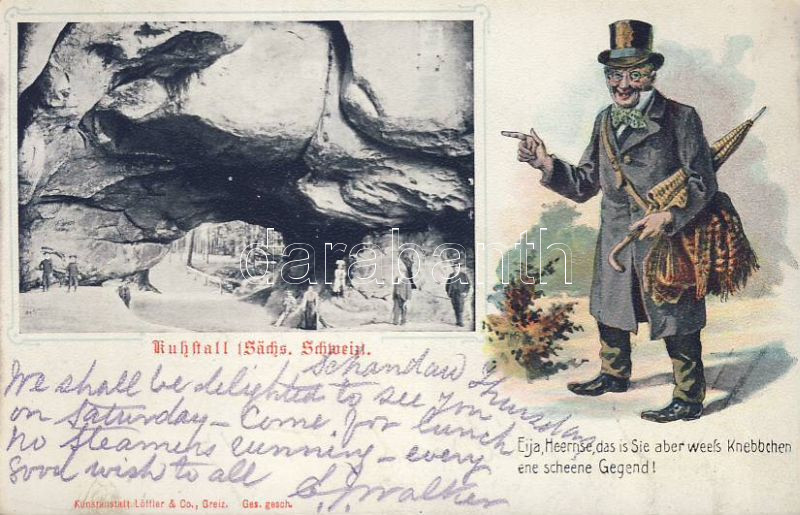 Kuhstall (Sächs. Schweiz).
darabanth
Schandau Thursday
We shall be delighted to see you
on Saturday – Come for lunch
no steamers running – every
good wish to all S. J. Walker
Eija, Heernse, das is Sie aber weeſs Knebbchen
ene scheene Gegend!
Kunstanstalt Löffler & Co., Greiz. Ges. gesch.